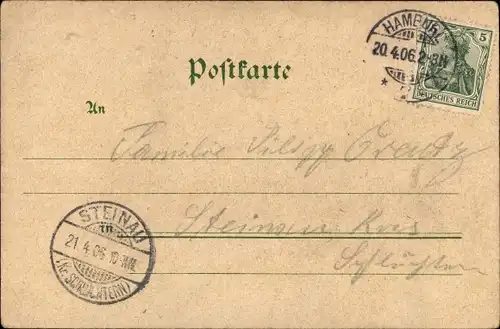 HAMBURG
20.4.06.2-3N
5
DEUTSCHES REICH
Postkarte
An
Familie Philipp
Steinau Kreis
Schlüchtern
STEINAU
21.4.06.
(Kr. SCHLÜCHTERN)